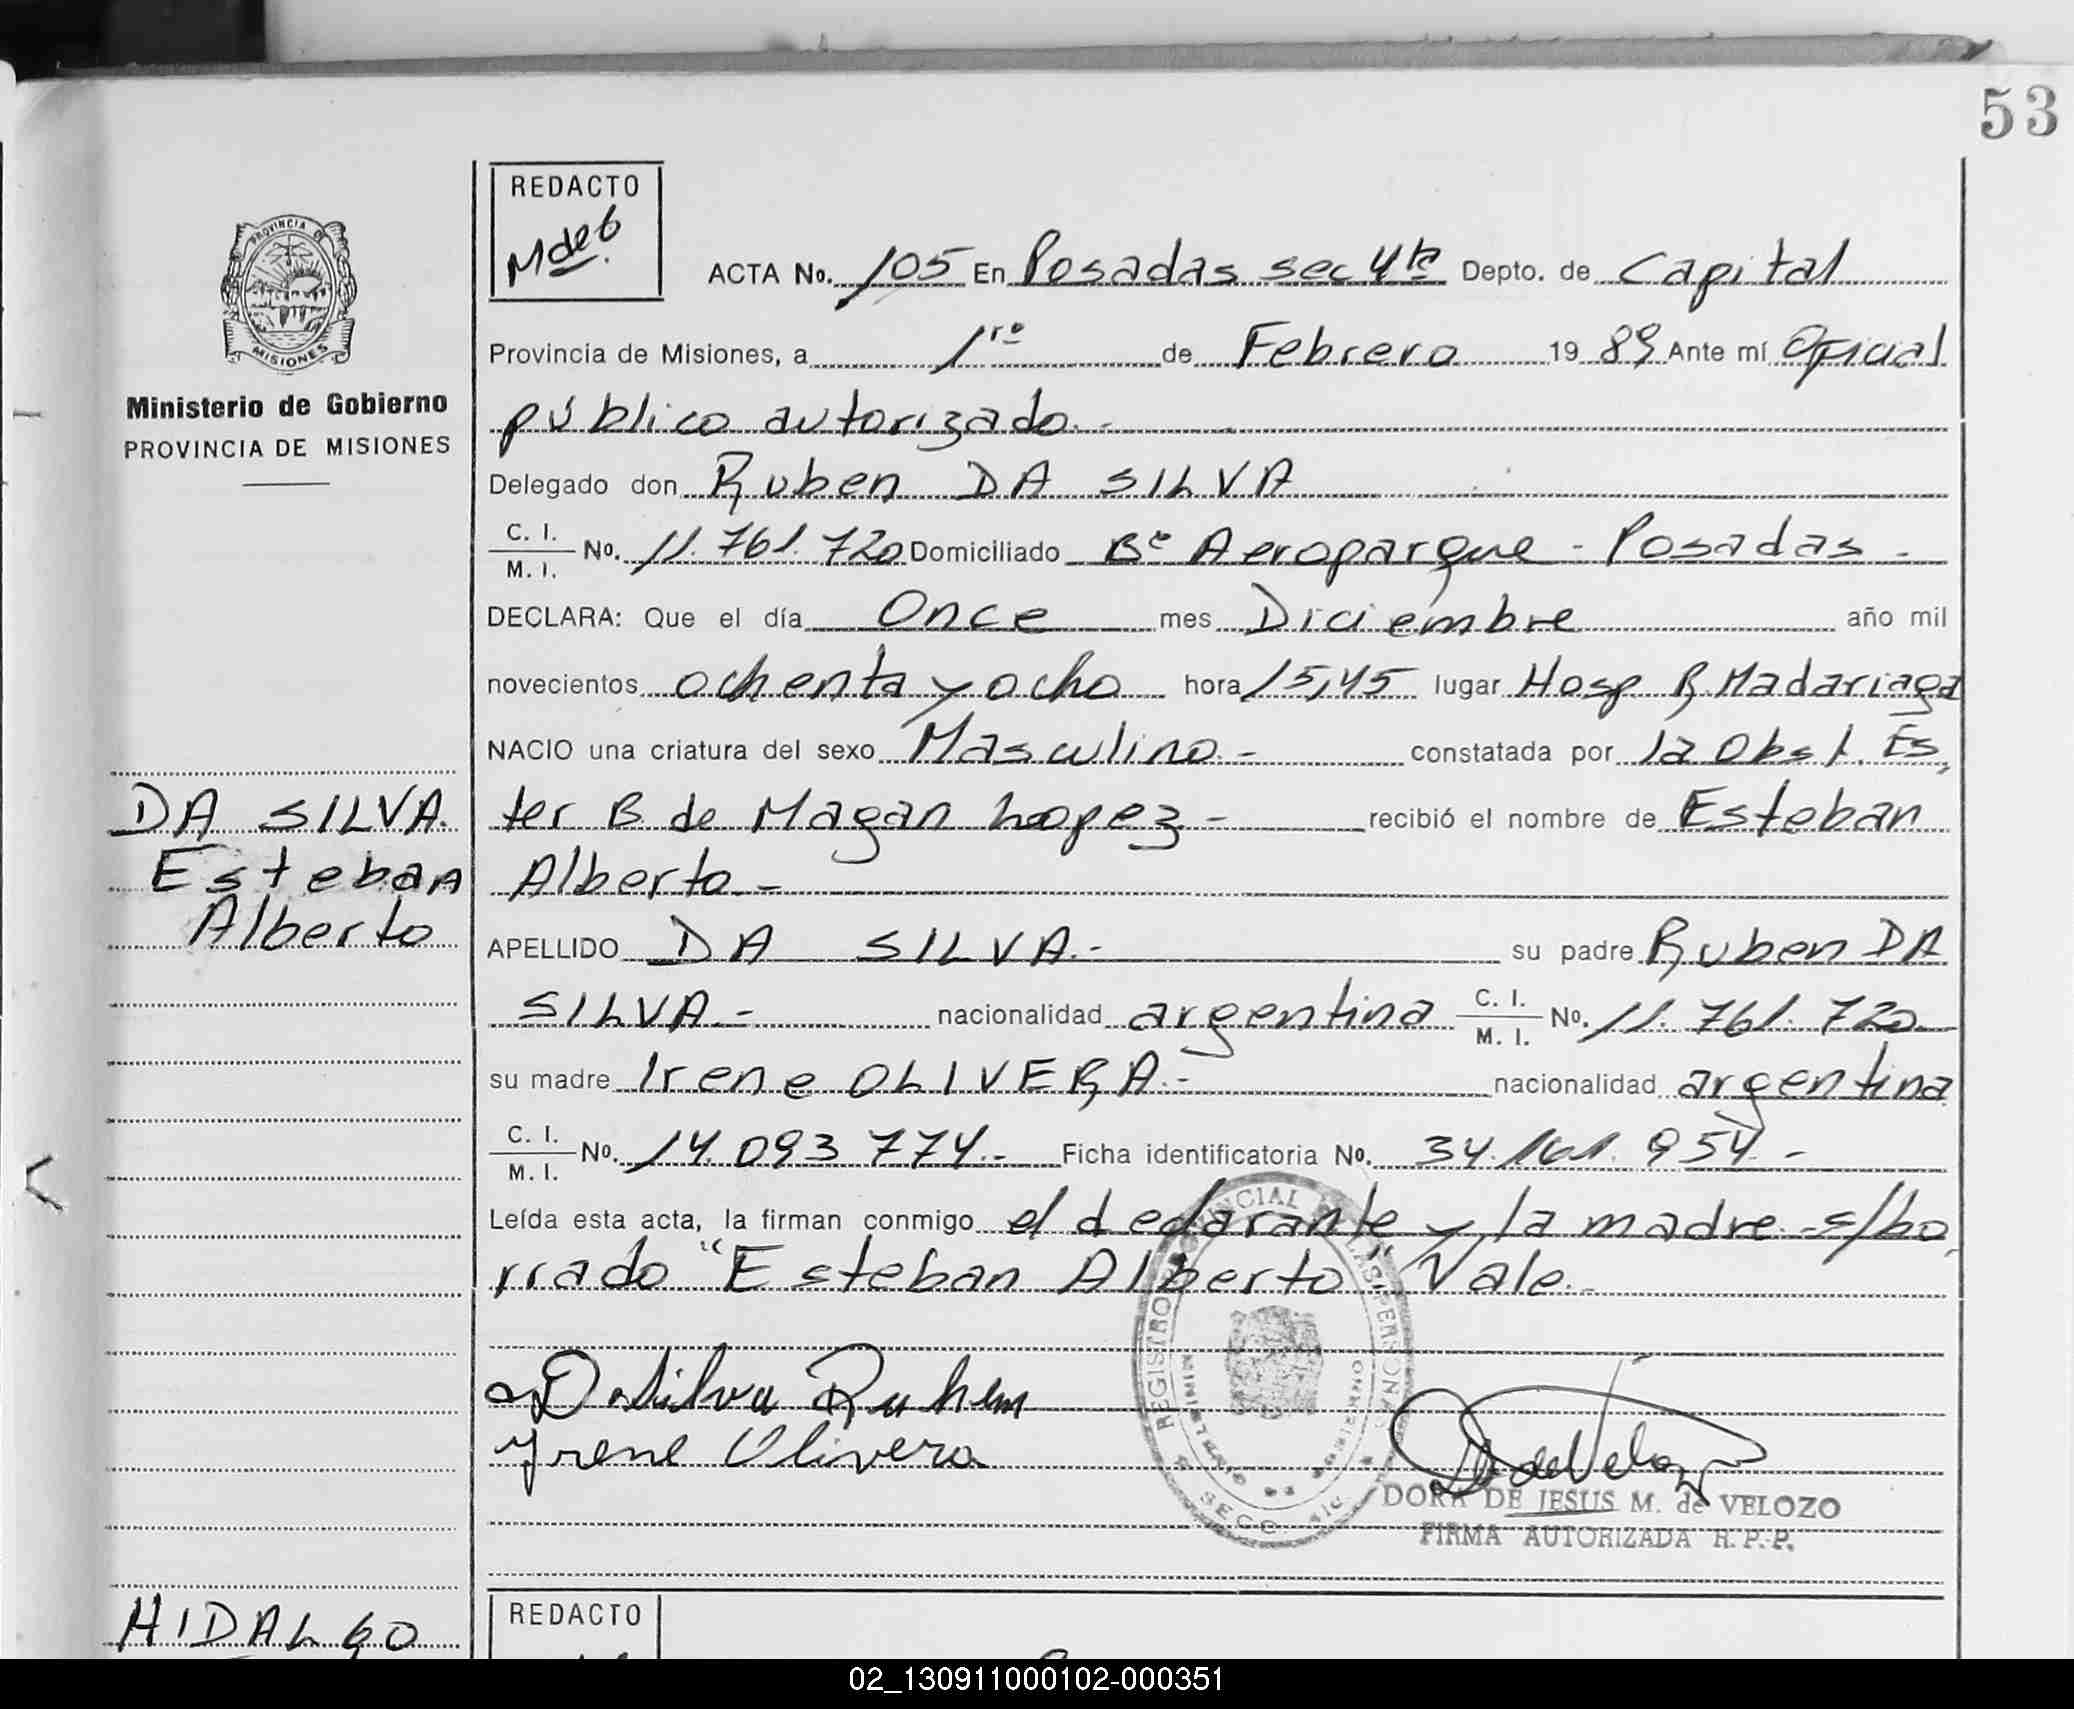 53
PROVINCIA DE
MISIONES
Ministerio de Gobierno
PROVINCIA DE MISIONES
DA SILVA.
Esteban
Alberto
REDACTO
ACTA No. 105 En Posadas sec 4ta Depto. de Capital
Provincia de Misiones, a 1ro de Febrero 19 89 Ante mí Oficial
público autorizado.-
Delegado don Ruben DA SILVA
C. I. / M. I. No. 11.761.720 Domiciliado Bº Aeroparque - Posadas -
DECLARA: Que el día Once mes Diciembre año mil
novecientos ochenta y ocho hora 15,45 lugar Hosp R. Madariaga
NACIO una criatura del sexo Masculino.- constatada por la Obst. Es,
ter B de Magan Lopez - recibió el nombre de Esteban
Alberto.-
APELLIDO DA SILVA.- su padre Ruben DA
SILVA.- nacionalidad argentina C. I. / M. I. No. 11.761.720
su madre Irene OLIVERA.- nacionalidad argentina
C. I. / M. I. No. 14.093 774.- Ficha identificatoria No. 34.161.954.-
Leída esta acta, la firman conmigo el declarante y la madre.-s/bo,
rrado "Esteban Alberto" Vale.-
Da Silva Ruben
Irene Olivera
REGISTRO PROVINCIAL DE LAS PERSONAS
MINISTERIO DE GOBIERNO
DORA DE JESUS M. de VELOZO
FIRMA AUTORIZADA R. P. P.
HIDALGO
REDACTO
02_130911000102-000351